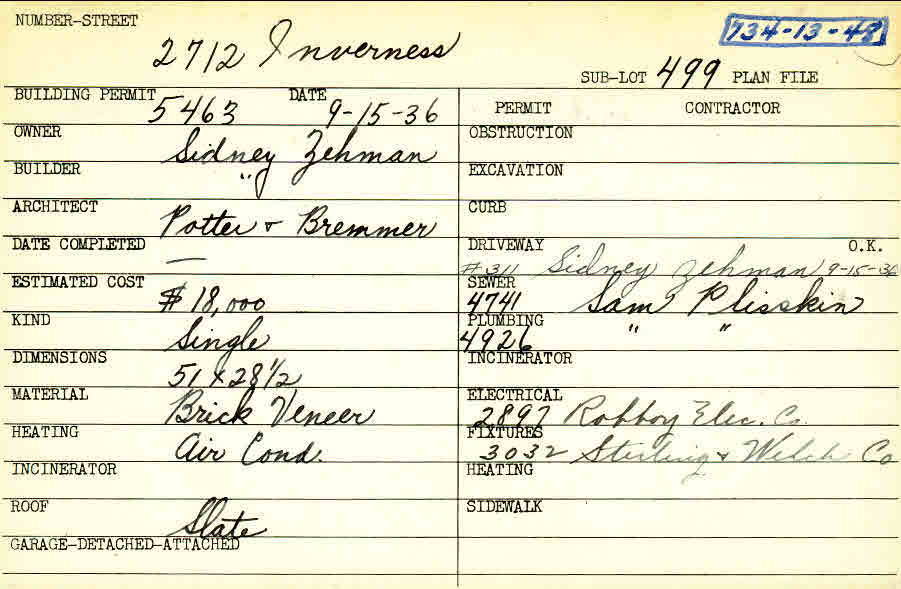 NUMBER-STREET
2712 Inverness
734-13-48
SUB-LOT 499 PLAN FILE
BUILDING PERMIT 5463 DATE 9-15-36
PERMIT CONTRACTOR
OWNER Sidney Zehman
OBSTRUCTION
BUILDER "
EXCAVATION
ARCHITECT Potter & Bremmer
CURB
DATE COMPLETED —
DRIVEWAY O.K.
#311 Sidney Zehman 9-15-36
ESTIMATED COST $18,000
SEWER
4741 Sam Plisskin
KIND Single
PLUMBING
4926 " "
DIMENSIONS 51 x 28 1/2
INCINERATOR
MATERIAL Brick Veneer
ELECTRICAL
2897 Robboy Elec. Co.
HEATING Air Cond.
FIXTURES
3032 Sterling & Welch Co
INCINERATOR
HEATING
ROOF Slate
SIDEWALK
GARAGE-DETACHED-ATTACHED